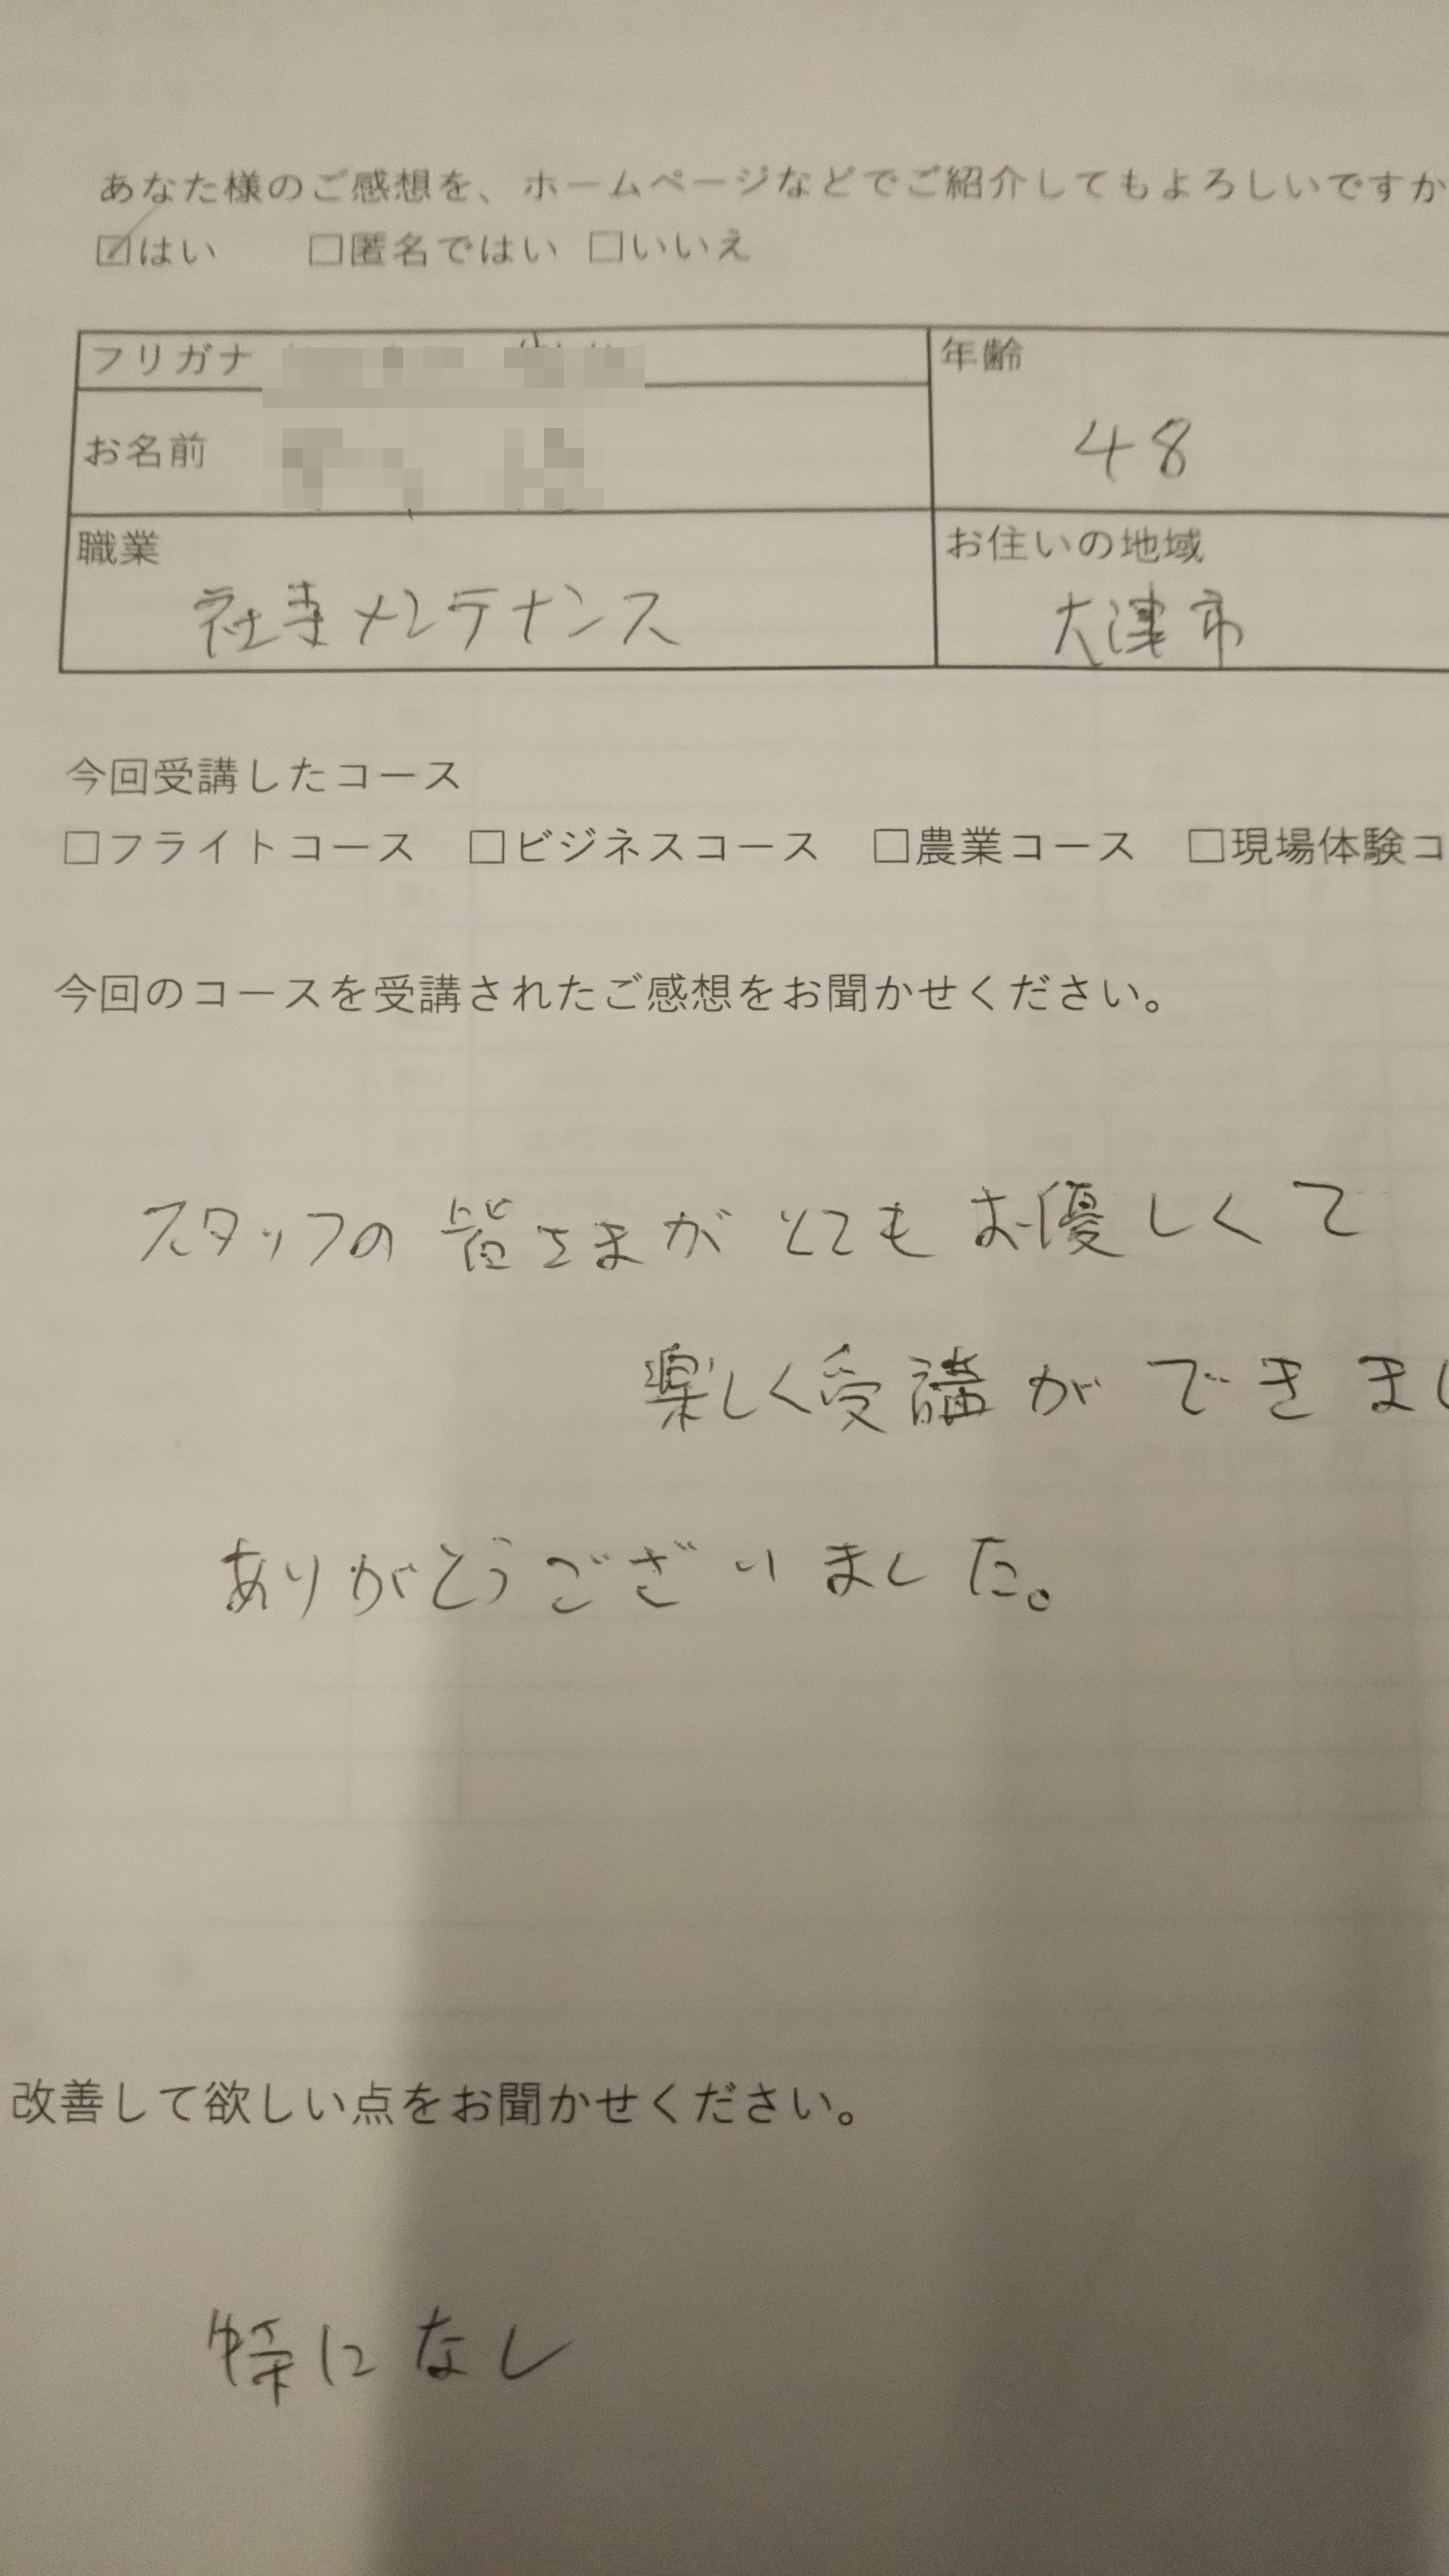 あなた様のご感想を、ホームページなどでご紹介してもよろしいですか
☑はい □匿名ではい □いいえ
フリガナ
年齢
お名前
48
職業
お住いの地域
社寺メンテナンス
大津市
今回受講したコース
□フライトコース □ビジネスコース □農業コース □現場体験コ
今回のコースを受講されたご感想をお聞かせください。
スタッフの皆さまがとてもお優しくて
楽しく受講ができまし
ありがとうございました。
改善して欲しい点をお聞かせください。
特になし